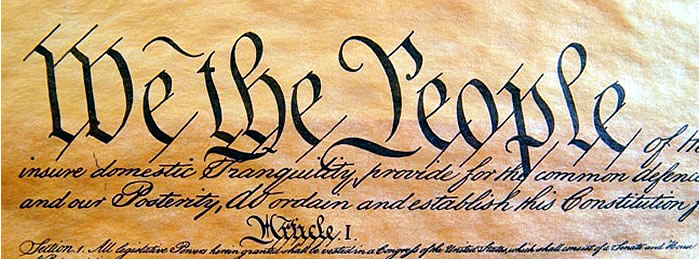 We the People of th
insure domestic Tranquility, provide for the common defence
and our Posterity, do ordain and establish this Constitution f
Article. I.
Section. 1. All legislative Powers herein granted shall be vested in a Congress of the United States, which shall consist of a Senate and House